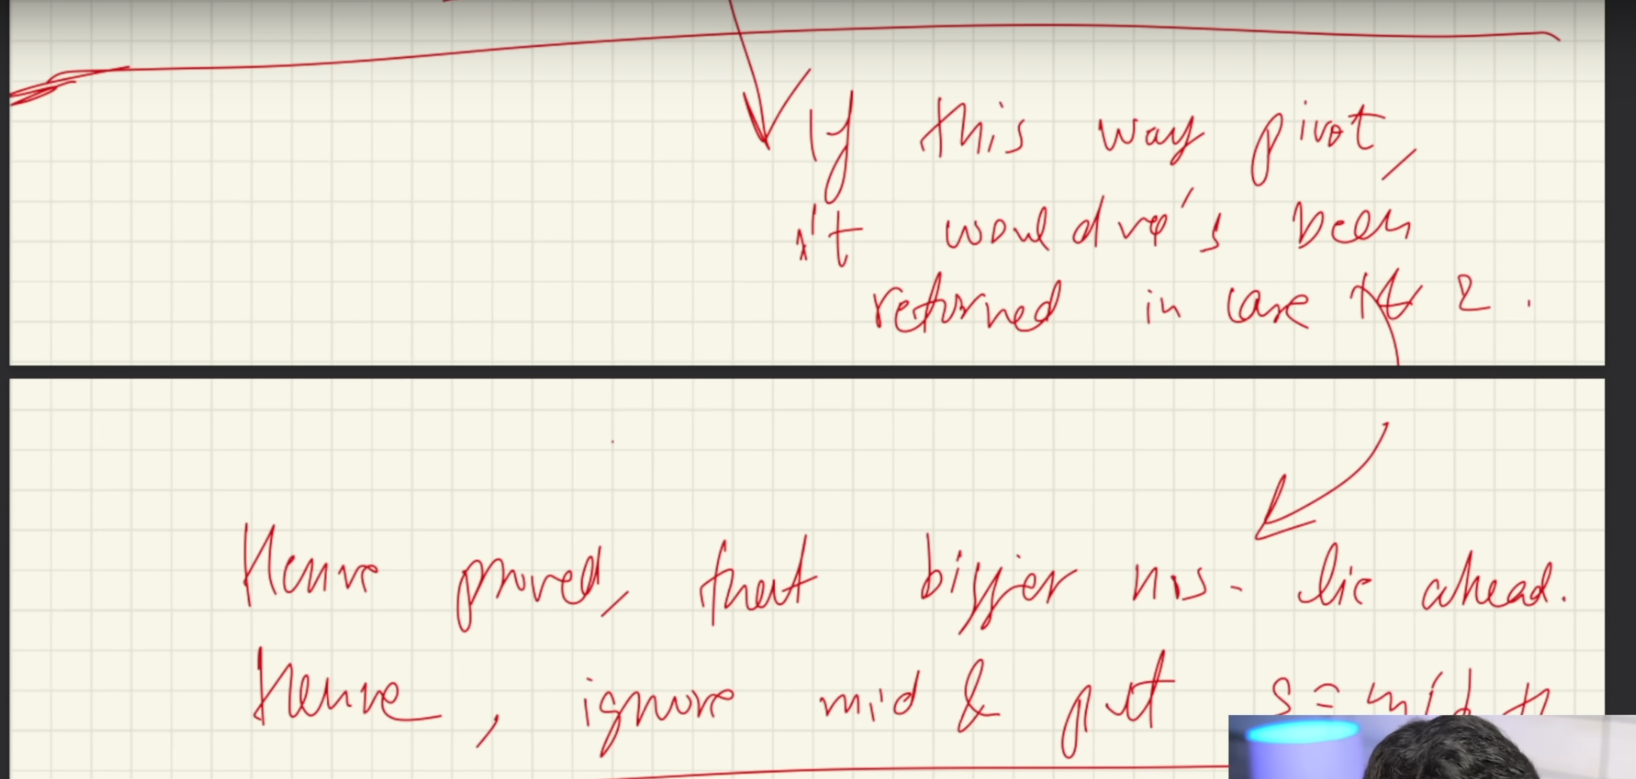 If this way pivot,
it would've's been
returned in case 2.
Hence proved, that bigger nos. lie ahead.
Hence, ignore mid & put s = mid +